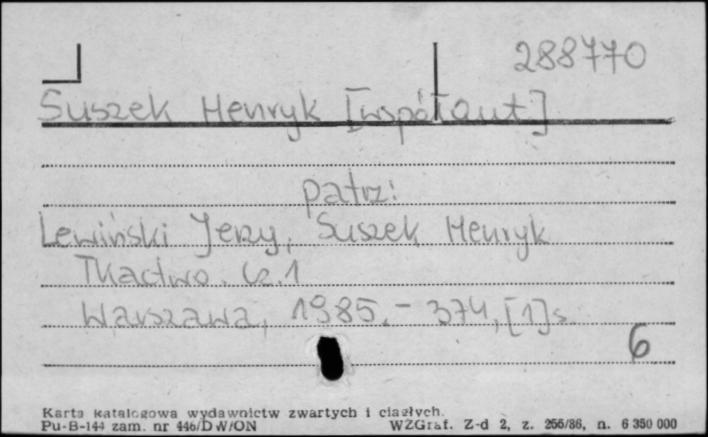 288770
Suszek Henryk [współaut]
patrz:
Lewiński Jerzy, Suszek Henryk
Tkactwo. Cz. 1
Warszawa, 1985. - 374, [1] s.
6
Karta katalogowa wydawnictw zwartych i ciągłych.
Pu-B-144 zam. nr 446/DW/ON WZGraf. Z-d 2, z. 255/86, n. 6 350 000